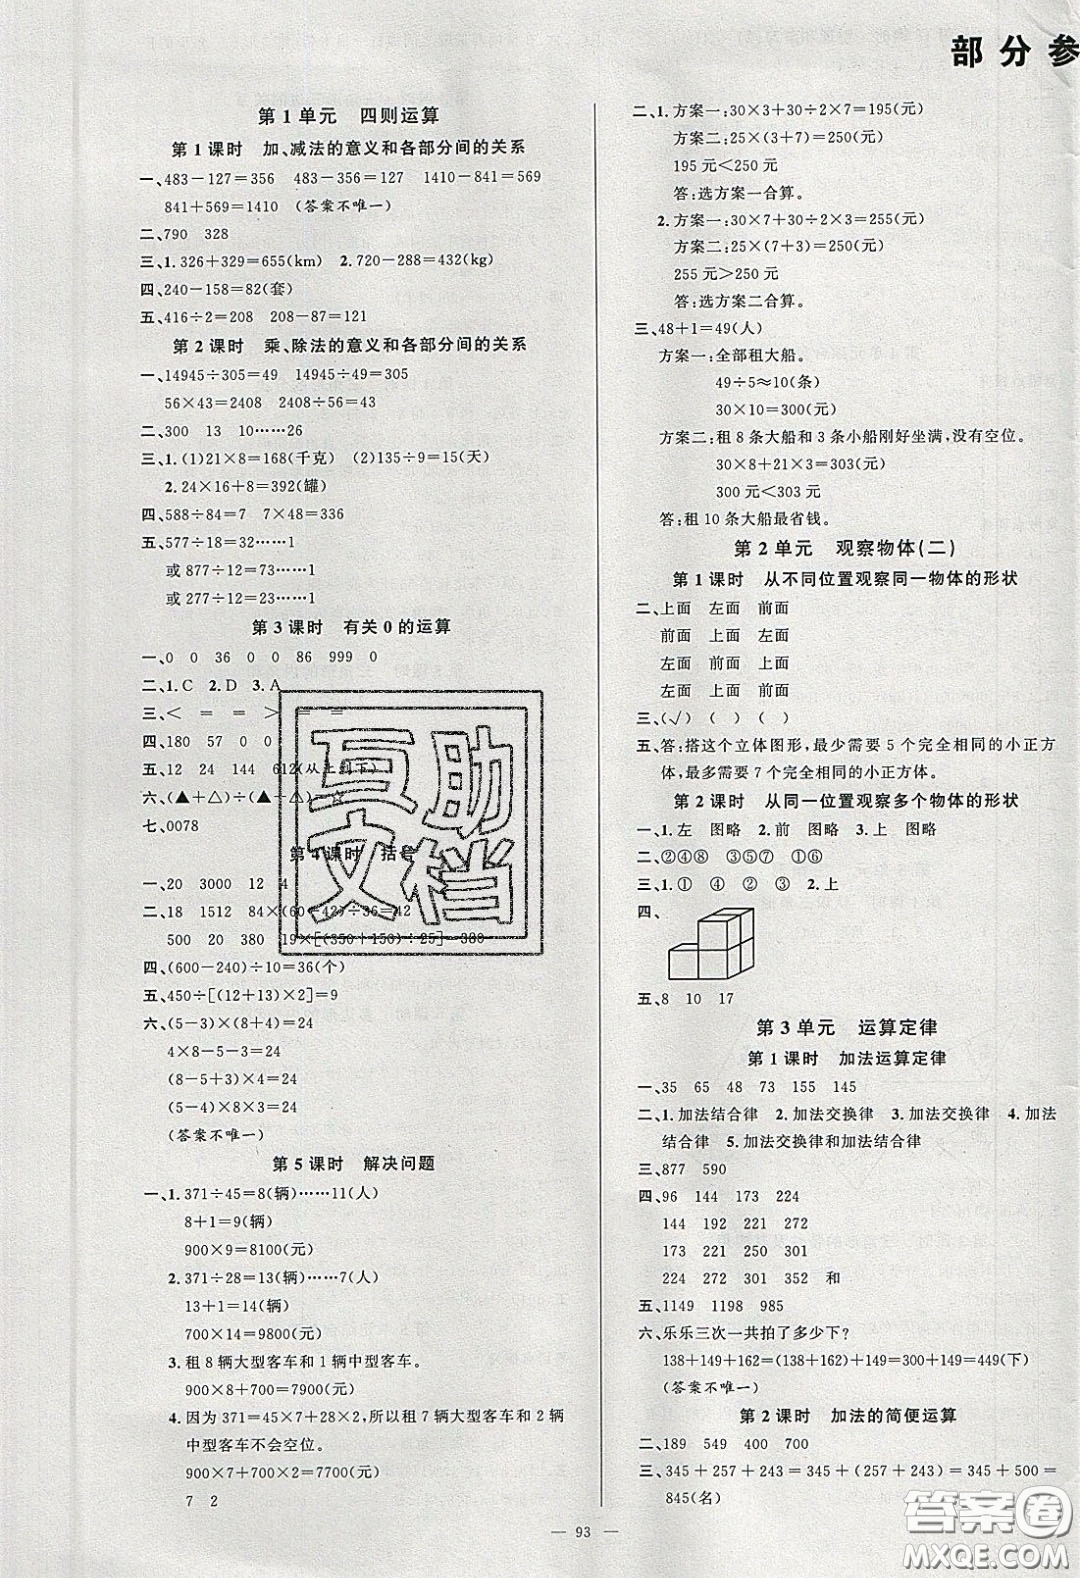 部分参
第1单元 四则运算
第1课时 加、减法的意义和各部分间的关系
一、483－127＝356 483－356＝127 1410－841＝569
841＋569＝1410 (答案不唯一)
二、790 328
三、1.326＋329＝655(km) 2.720－288＝432(kg)
四、240－158＝82(套)
五、416÷2＝208 208－87＝121
第2课时 乘、除法的意义和各部分间的关系
一、14945÷305＝49 14945÷49＝305
56×43＝2408 2408÷56＝43
二、300 13 10……26
三、1.(1)21×8＝168(千克) (2)135÷9＝15(天)
2.24×16＋8＝392(罐)
四、588÷84＝7 7×48＝336
五、577÷18＝32……1
或 877÷12＝73……1
或 277÷12＝23……1
第3课时 有关0的运算
一、0 0 36 0 0 86 999 0
二、1.C 2.D 3.A
三、＜ ＝ ＝ ＞ ＝ ＝
四、180 57 0 0
五、12 24 144 612(从上到下)
六、(▲＋△)÷(▲＋△)＝☆
七、0078
第4课时 括号
一、20 3000 12 4
二、18 1512 84×(60－42)÷36＝42
500 20 380 19×[(350＋150)÷25]＝380
四、(600－240)÷10＝36(个)
五、450÷[(12＋13)×2]＝9
六、(5－3)×(8＋4)＝24
4×8－5－3＝24
(8－5＋3)×4＝24
(5－4)×8×3＝24
(答案不唯一)
第5课时 解决问题
一、1.371÷45＝8(辆)……11(人)
8＋1＝9(辆)
900×9＝8100(元)
2.371÷28＝13(辆)……7(人)
13＋1＝14(辆)
700×14＝9800(元)
3.租8辆大型客车和1辆中型客车。
900×8＋700＝7900(元)
4.因为371＝45×7＋28×2,所以租7辆大型客车和2辆
中型客车不会空位。
900×7＋700×2＝7700(元)
7 2
二、1.方案一:30×3＋30÷2×7＝195(元)
方案二:25×(3＋7)＝250(元)
195元＜250元
答:选方案一合算。
2.方案一:30×7＋30÷2×3＝255(元)
方案二:25×(7＋3)＝250(元)
255元＞250元
答:选方案二合算。
三、48＋1＝49(人)
方案一:全部租大船。
49÷5≈10(条)
30×10＝300(元)
方案二:租8条大船和3条小船刚好坐满,没有空位。
30×8＋21×3＝303(元)
300元＜303元
答:租10条大船最省钱。
第2单元 观察物体(二)
第1课时 从不同位置观察同一物体的形状
二、上面 左面 前面
前面 上面 左面
左面 前面 上面
左面 上面 前面
三、(√) ( ) ( ) ( )
五、答:搭这个立体图形,最少需要5个完全相同的小正方
体,最多需要7个完全相同的小正方体。
第2课时 从同一位置观察多个物体的形状
一、1.左 图略 2.前 图略 3.上 图略
二、②④⑧ ③⑤⑦ ①⑥
三、1.① ④ ② ③ 2.上
四、
五、8 10 17
第3单元 运算定律
第1课时 加法运算定律
一、35 65 48 73 155 145
二、1.加法结合律 2.加法交换律 3.加法交换律 4.加法
结合律 5.加法交换律和加法结合律
三、877 590
四、96 144 173 224
144 192 221 272
173 221 250 301
224 272 301 352 和
五、1149 1198 985
六、乐乐三次一共拍了多少下?
138＋149＋162＝(138＋162)＋149＝300＋149＝449(下)
(答案不唯一)
第2课时 加法的简便运算
二、189 549 400 700
三、345＋257＋243＝345＋(257＋243)＝345＋500＝
845(名)
— 93 —
互助
文档
答案圈
MXQE.COM